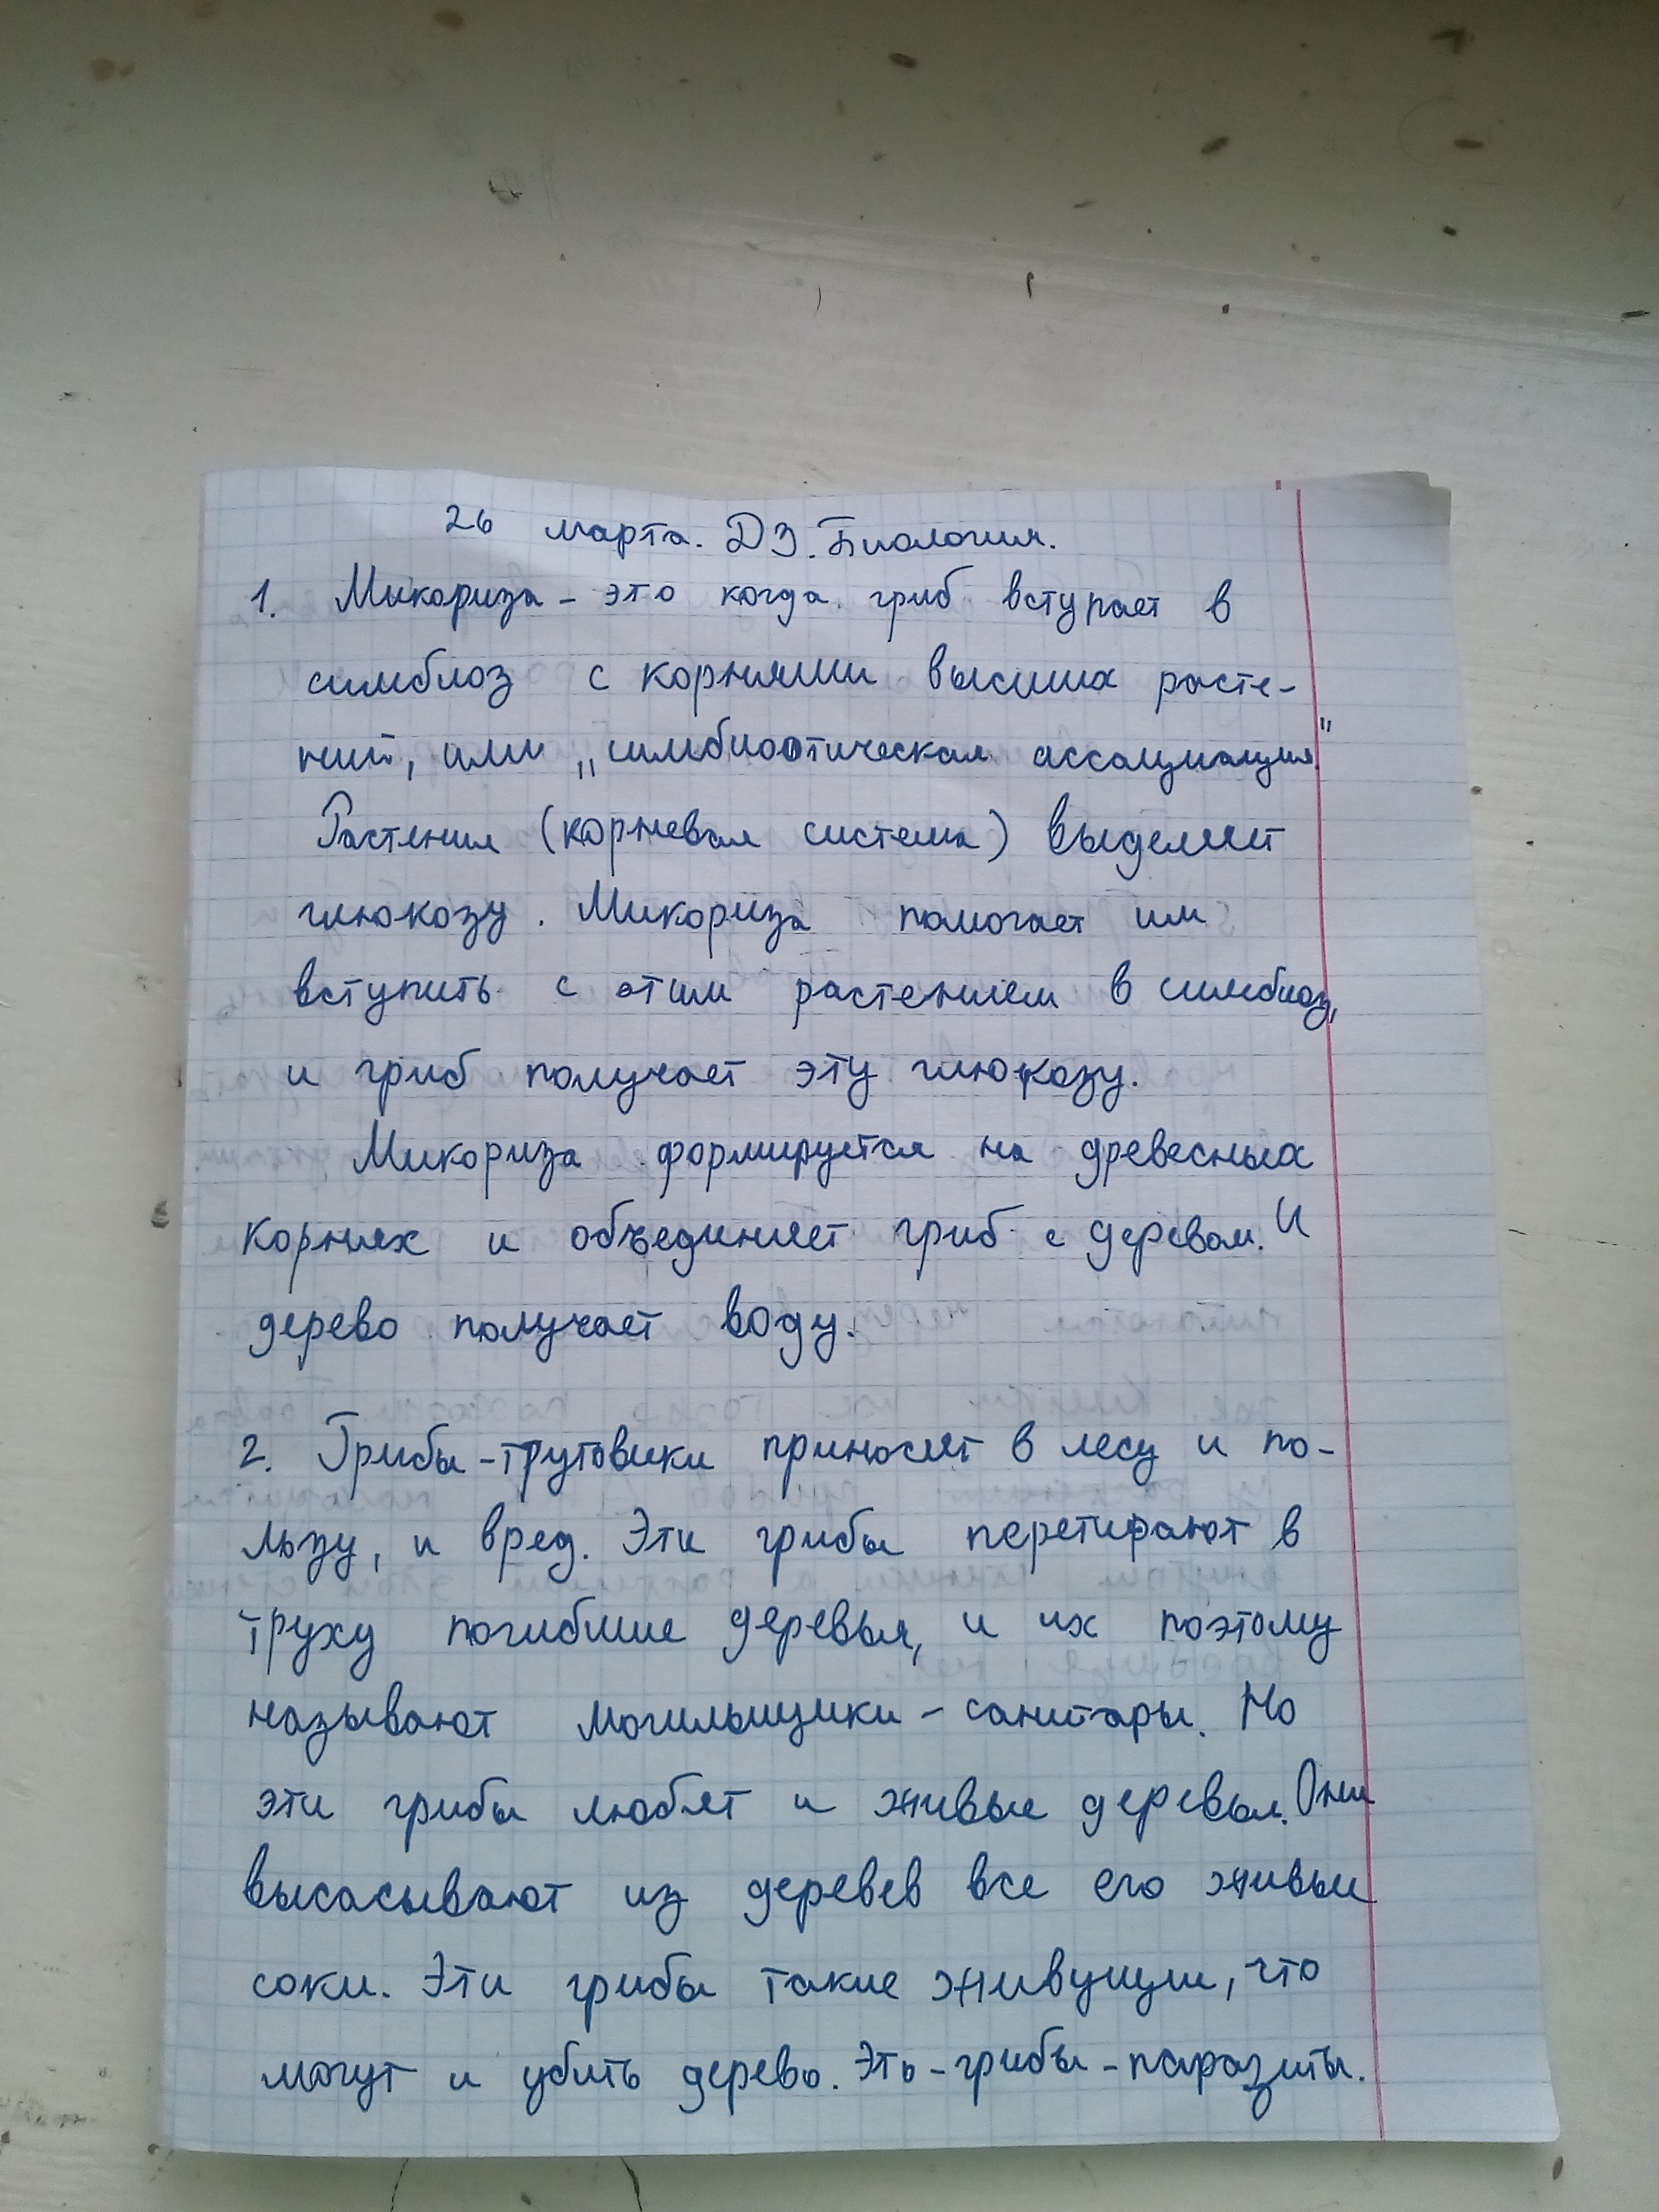 26 марта. ДЗ. Биология.
1. Микориза - это когда гриб вступает в
симбиоз с корнями высших расте-
ний, или „симбиотическая ассоциация"
Растения (корневая система) выделяет
глюкозу. Микориза помогает им
вступить с этим растением в симбиоз,
и гриб получает эту глюкозу.
Микориза формируется на древесных
корнях и объединяет гриб с деревом. И
дерево получает воду.
2. Грибы-трутовики приносят в лесу и по-
льзу, и вред. Эти грибы перетирают в
труху погибшие деревья, и их поэтому
называют могильщики - санитары. Но
эти грибы любят и живые деревья. Они
высасывают из деревев все его живые
соки. Эти грибы такие живущие, что
могут и убить дерево. Это - грибы - паразиты.